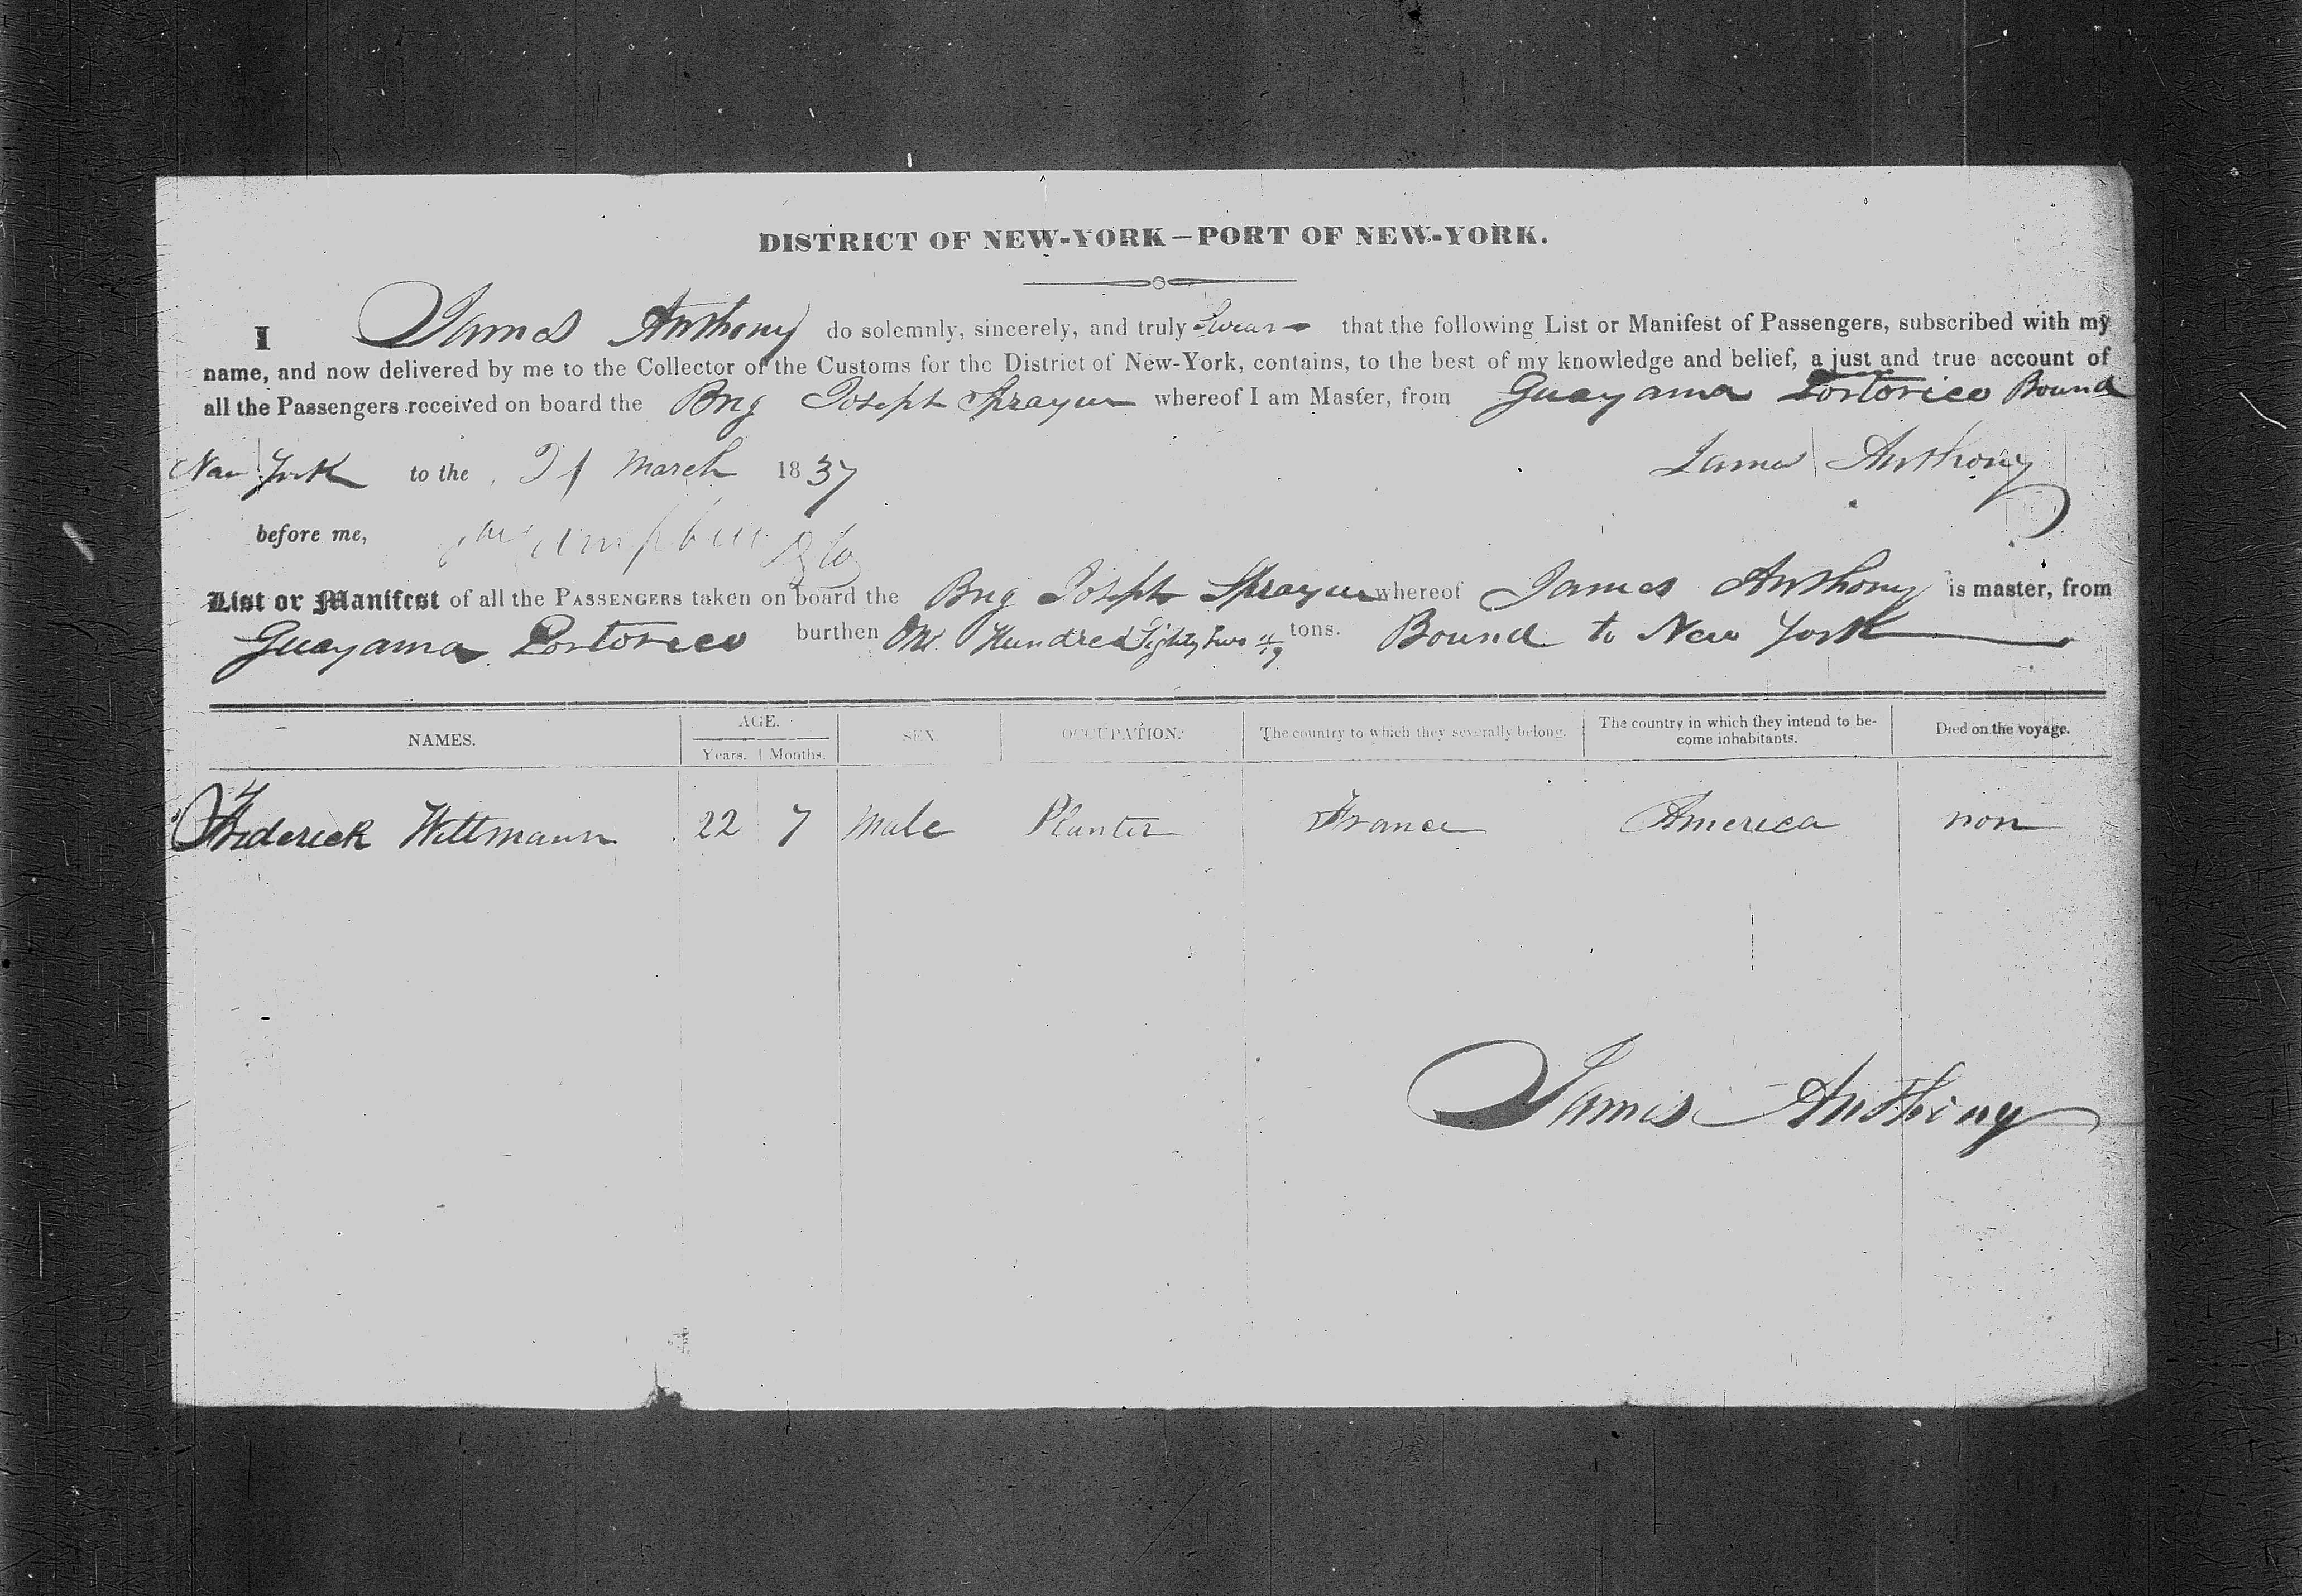 DISTRICT OF NEW-YORK—PORT OF NEW-YORK.
I James Anthony do solemnly, sincerely, and truly Swear that the following List or Manifest of Passengers, subscribed with my
name, and now delivered by me to the Collector of the Customs for the District of New-York, contains, to the best of my knowledge and belief, a just and true account of
all the Passengers received on board the Brig Joseph whereof I am Master, from Guayama Portorico Bound
New York to the March 1837 James Anthony
before me,
List or Manifest of all the PASSENGERS taken on board the Brig Joseph whereof James Anthony is master, from
Guayama Portorico burthen One Hundred Eighty two tons. Bound to New York
NAMES. AGE. SEX. OCCUPATION. The country to which they severally belong. The country in which they intend to be-
come inhabitants. Died on the voyage.
Years. Months.
Frederick Wittmann 22 7 Male Planter France America non
James Anthony